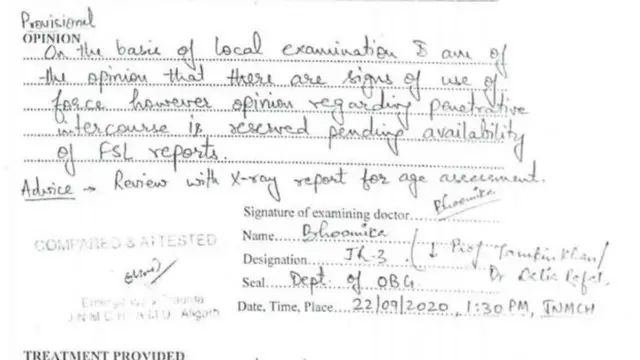 Provisional
OPINION
On the basic of local examination I am of
the opinion that there are signs of use of
force however opinion regarding penetrative
intercourse is reserved pending availability
of FSL reports.
Advice → Review with X-ray report for age assessment.
Signature of examining doctor Bhoomika
Name Bhoomika
Designation JR-3 ↓ Prof Tamkin Khan/
Seal Dept. of OBG Dr Dalia Rafat
Date, Time, Place 22/09/2020, 1:30 PM, JNMCH
COMPARED & ATTESTED
J.N.M.C.H. A.M.U. Aligarh
TREATMENT PROVIDED